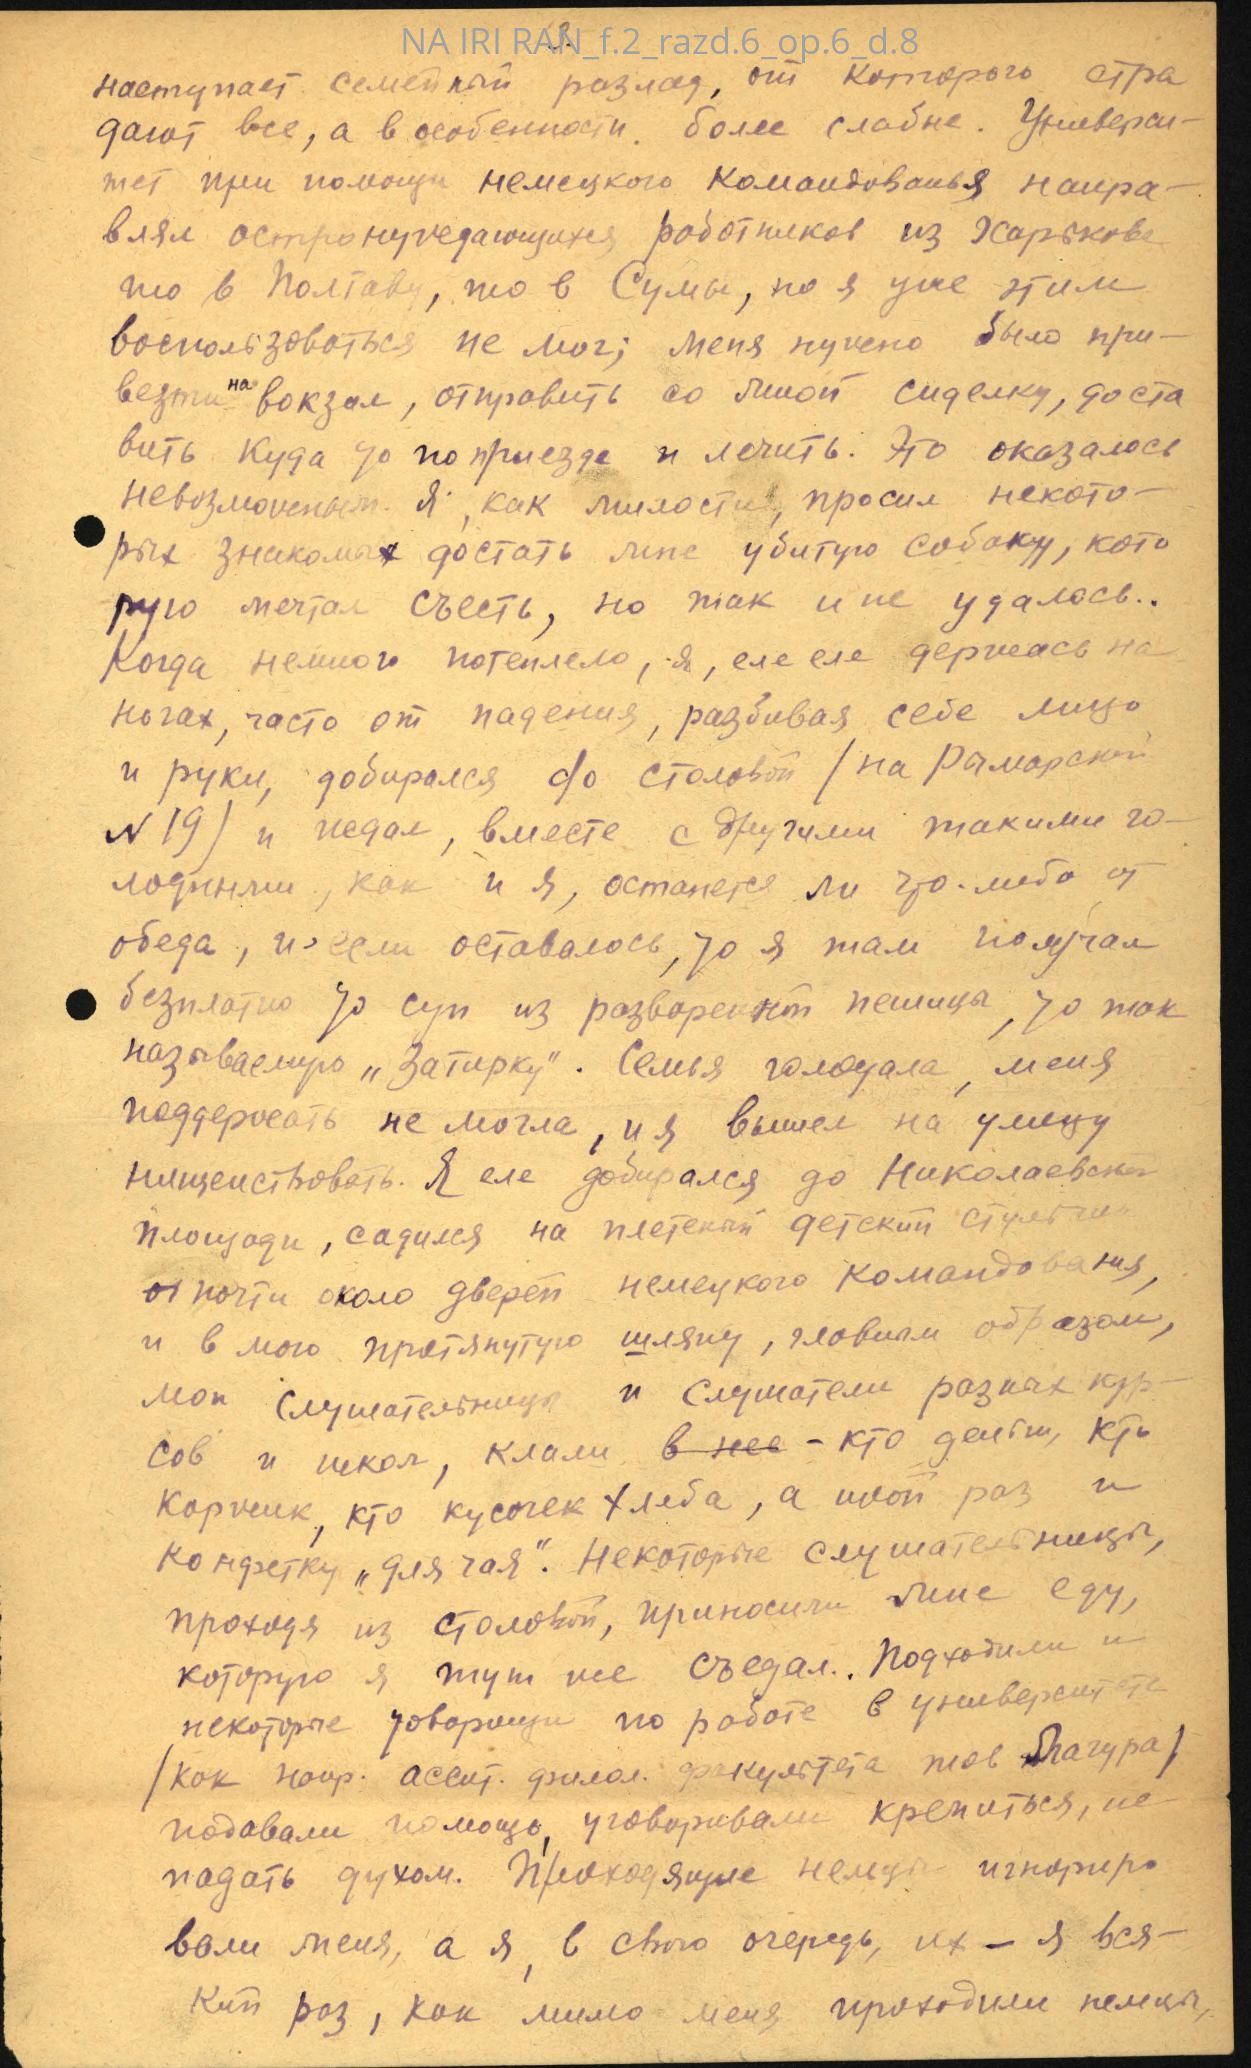 NA IRI RAN_f.2_razd.6_op.6_d.8
наступает семейный разлад, от которого стра
дают все, а в особенности более слабые. Универси-
тет при помощи немецкого командованья напра-
влял остронуждающихся работников из Харькова
то в Полтаву, то в Сумы, но я уже этим
воспользоваться не мог; меня нужно было при-
везти на вокзал, отправить со мной сиделку, доста
вить куда то по приезде и лечить. Это оказалось
невозможным. Я, как милости, просил некото-
рых знакомых достать мне убитую собаку, кото
рую мечтал съесть, но так и не удалось..
Когда немного потеплело, я, еле еле держась на
ногах, часто от падения, разбивая себе лицо
и руки, добирался до столовой /на Рымарской
N 19/ и ждал, вместе с другими такими го-
лодными, как и я, останется ли что-либо от
обеда, и если оставалось, то я там получал
безплатно то суп из разваренной пшеницы, то так
называемую „Затирку". Семья голодала, меня
поддержать не могла, и я вышел на улицу
нищенствовать. Я еле добирался до Николаевской
площади, садился на плетеный детский стульчик
почти около дверей немецкого командования,
и в мою протянутую шляпу, главным образом,
мои слушательницы и слушатели разных кур-
сов и школ, клали в нее - кто деньги, кто
коржик, кто кусочек хлеба, а иной раз и
конфетку „для чая". Некоторые слушательницы,
проходя из столовой, приносили мне еду,
которую я тут же съедал.. Подходили и
некоторые товарищи по работе в университете
/как напр. ассист. филол. факультета тов Мачура/
подавали помощь, уговаривали крепиться, не
падать духом. Проходящие немцы игнориро
вали меня, а я, в свою очередь, их - я вся-
кий раз, как мимо меня проходили немцы,